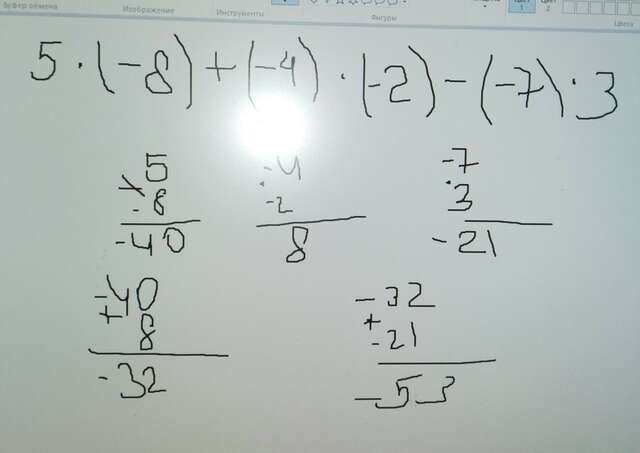 Буфер обмена Изображение Инструменты Фигуры Цвета
1 2
5 · (-8) + (-4) · (-2) - (-7) · 3
5 -4 -7
× -8 · -2 · 3
-40 8 -21
-40 -32
+ 8 + -21
-32 -53